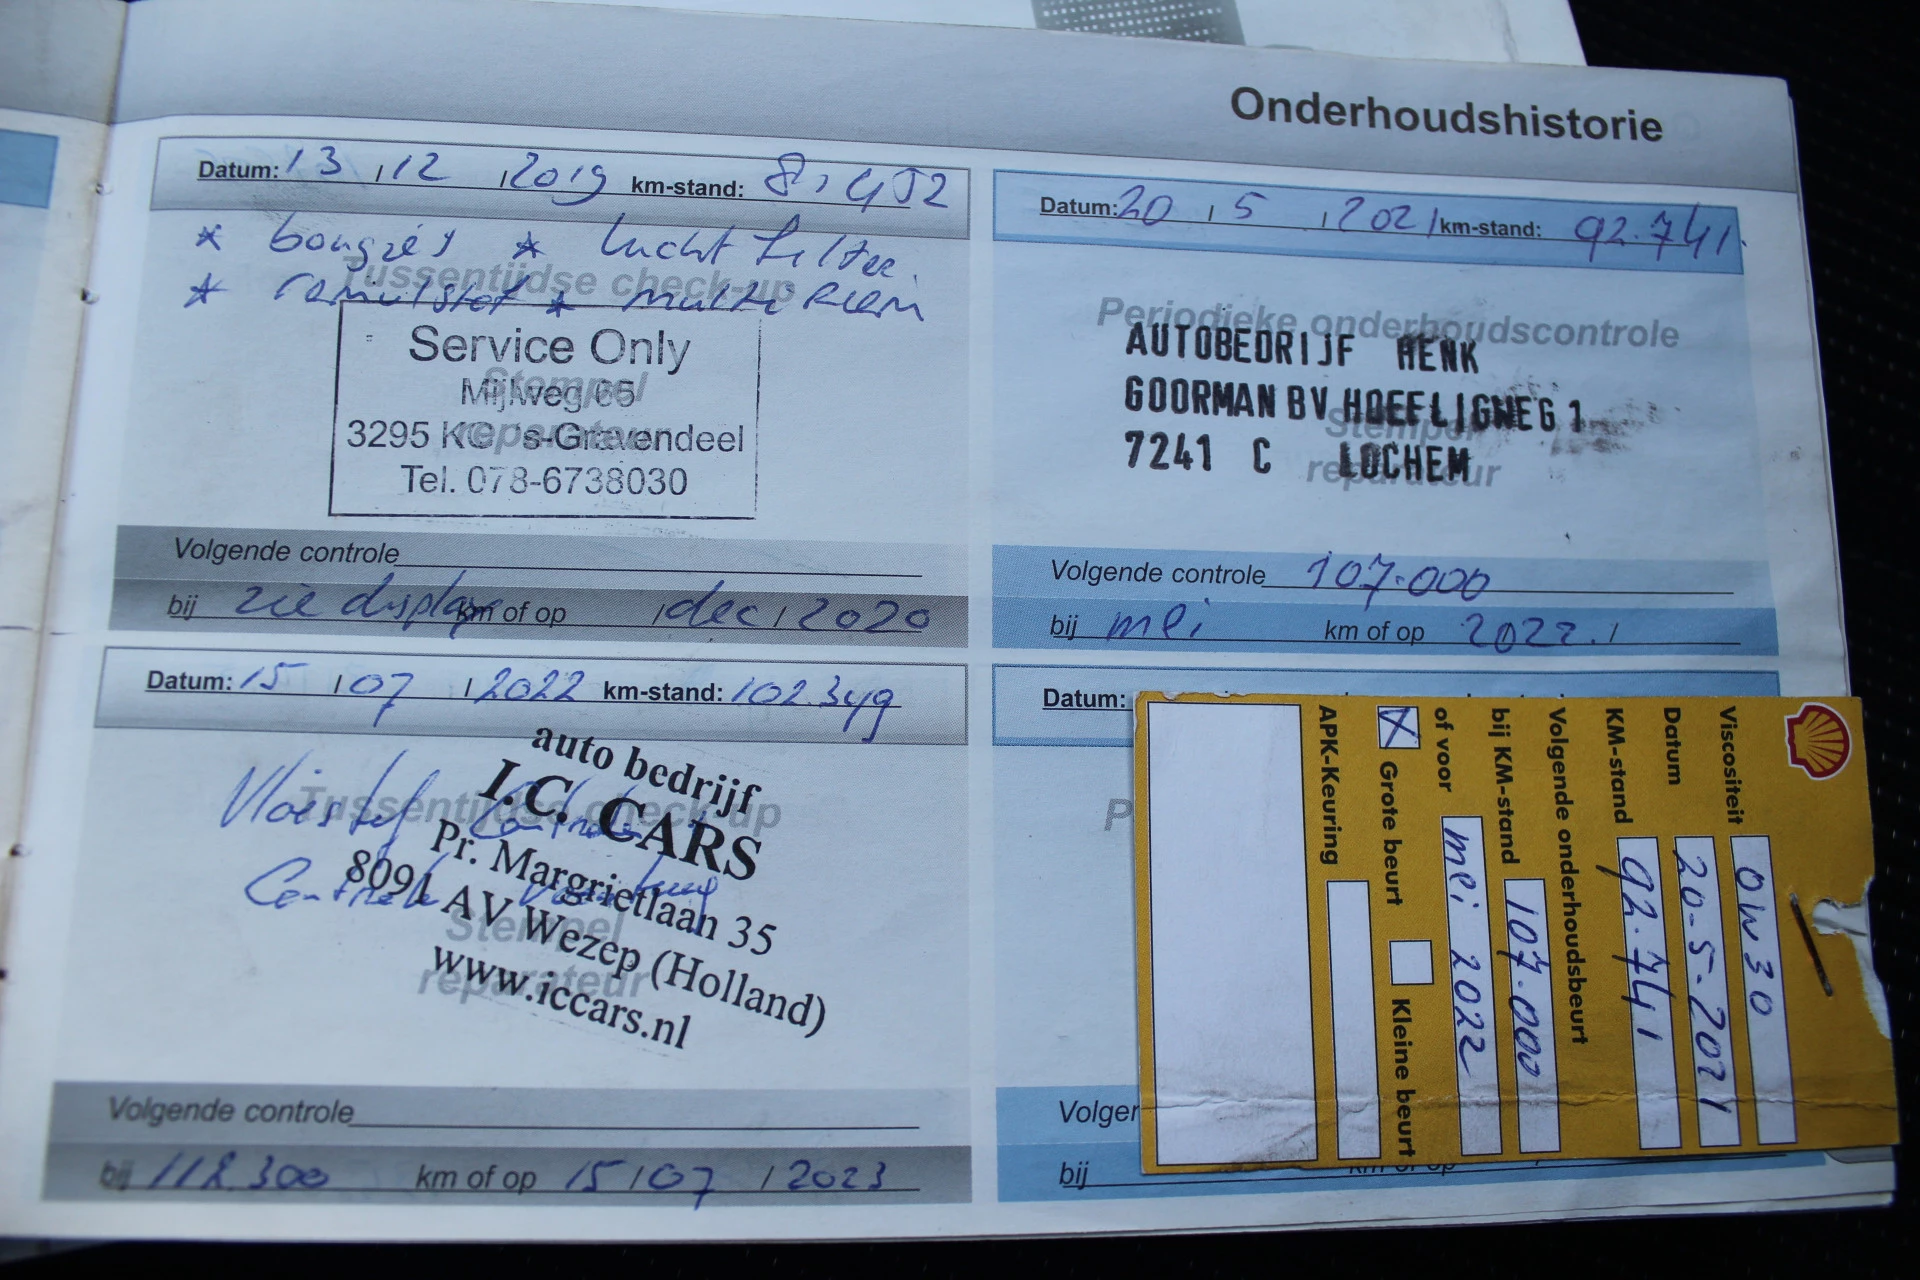 Onderhoudshistorie
Datum: 13 / 12 / 2019 km-stand: 8
* bougies * lucht filter.
* remvloeistof * multi Riem
Tussentijdse check-up
Service Only
Mijlweg 65
3295 KG 's-Gravendeel
Tel. 078-6738030
Stempel
reparateur
Volgende controle
bij zie display km of op / dec / 2020
Datum: 20 / 5 / 2021 km-stand: 92.741.
Periodieke onderhoudscontrole
AUTOBEDRIJF HENK
GOORMAN BV HOEFLIGWEG 1
7241 C LOCHEM
Stempel
reparateur
Volgende controle 107.000
bij mei km of op 2022. /
Datum: 15 / 07 / 2022 km-stand: 102.349
Tussentijdse check-up
Vloeistof Controle
Controle
auto bedrijf
I.C. CARS
Pr. Margrietlaan 35
8091 AV Wezep (Holland)
www.iccars.nl
Stempel
reparateur
Volgende controle
bij 112.300 km of op 15 / 07 / 2023
Datum:
P
Volger
bij km of op
Viscositeit 0W30
Datum 20-5-2021
KM-stand 92.741
Volgende onderhoudsbeurt
bij KM-stand 107.000
of voor mei 2022
X Grote beurt Kleine beurt
APK-Keuring